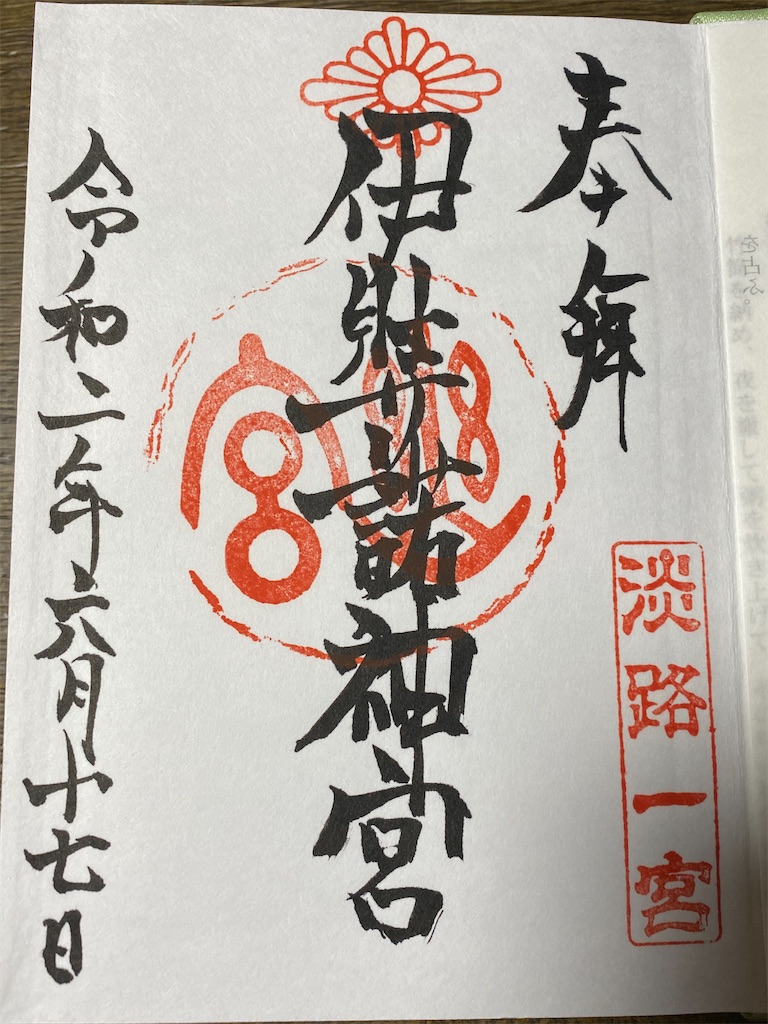 奉拜
淡路一宮
伊弉諾神宮
幽宮
令和二年六月十七日